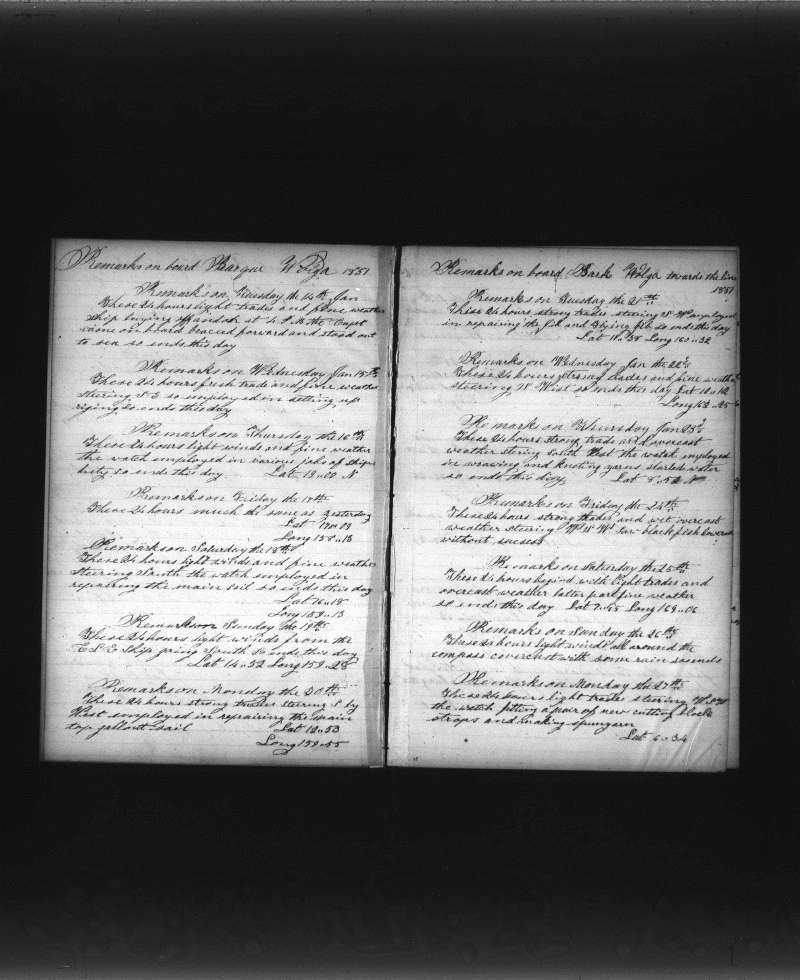 Remarks on board Barque Wolga 1851
Remarks on Tuesday the 14th Jan
These 24 hours light trades and fine weather
ship laying off and ish at 4 P.M the Capt
came on board braced forward and stood out
to sea so ends this day
Remarks on Wednesday Jan 15th
These 24 hours fresh trade and fine weather
steering S E so employed in setting up
riging so ends this day
Remarks on Thursday the 16th
These 24 hours light winds and fine weather
the watch employed in various jobs of ships
duty so ends this day Lat 19..00 N
Remarks on Friday the 17th
These 24 hours much the same as yesterday
Lat 17..08
Long 158..13
Remarks on Saturday the 18th
These 24 hours light winds and fine weather
steering South the watch employed in
repairing the main sail so ends this day
Lat 16..18
Long 159..13
Remarks on Sunday the 19th
These 24 hours light winds from the
E S E ship going South so ends this day
Lat 14..52 Long 159..28
Remarks on Monday the 20th
These 24 hours strong trades steering S by
West employed in repairing the main
top gallant sail Lat 12..53
Long 159..55
Remarks on board Bark Wolga towards the line
1851
Remarks on Tuesday the 21st
These 24 hours strong trades steering S W employed
in repairing the jib and flying jib so ends this day
Lat 11..38 Long 160..32
Remarks on Wednesday Jan the 22d
These 24 hours strong trades and fine weather
steering S West so ends this day Lat 10..12
Long 162..25
Remark on Thursday Jan 23d
These 24 hours strong trade and overcast
weather stering South West the watch employed
in weaving and knoting yarns started water
so ends this day Lat 8..52 N
Remarks on Friday the 24th
These 24 hours strong trades and wet overcast
weather steering W S W Saw blackfish lowered
without sucess
Remarks on Saturday the 25th
These 24 hours begind with light trades and
overcast weather latter part fine weather
so ends this day Lat 7..55 Long 169..06
Remarks on Sunday the 26th
These 24 hours light winds all around the
compass overcast with som rain so ends
Remarks on Monday the 27th
These 24 hours light trades steering W S W
the watch fitting a pair of new cutting block
straps and making spunyarn
Lat 6..34